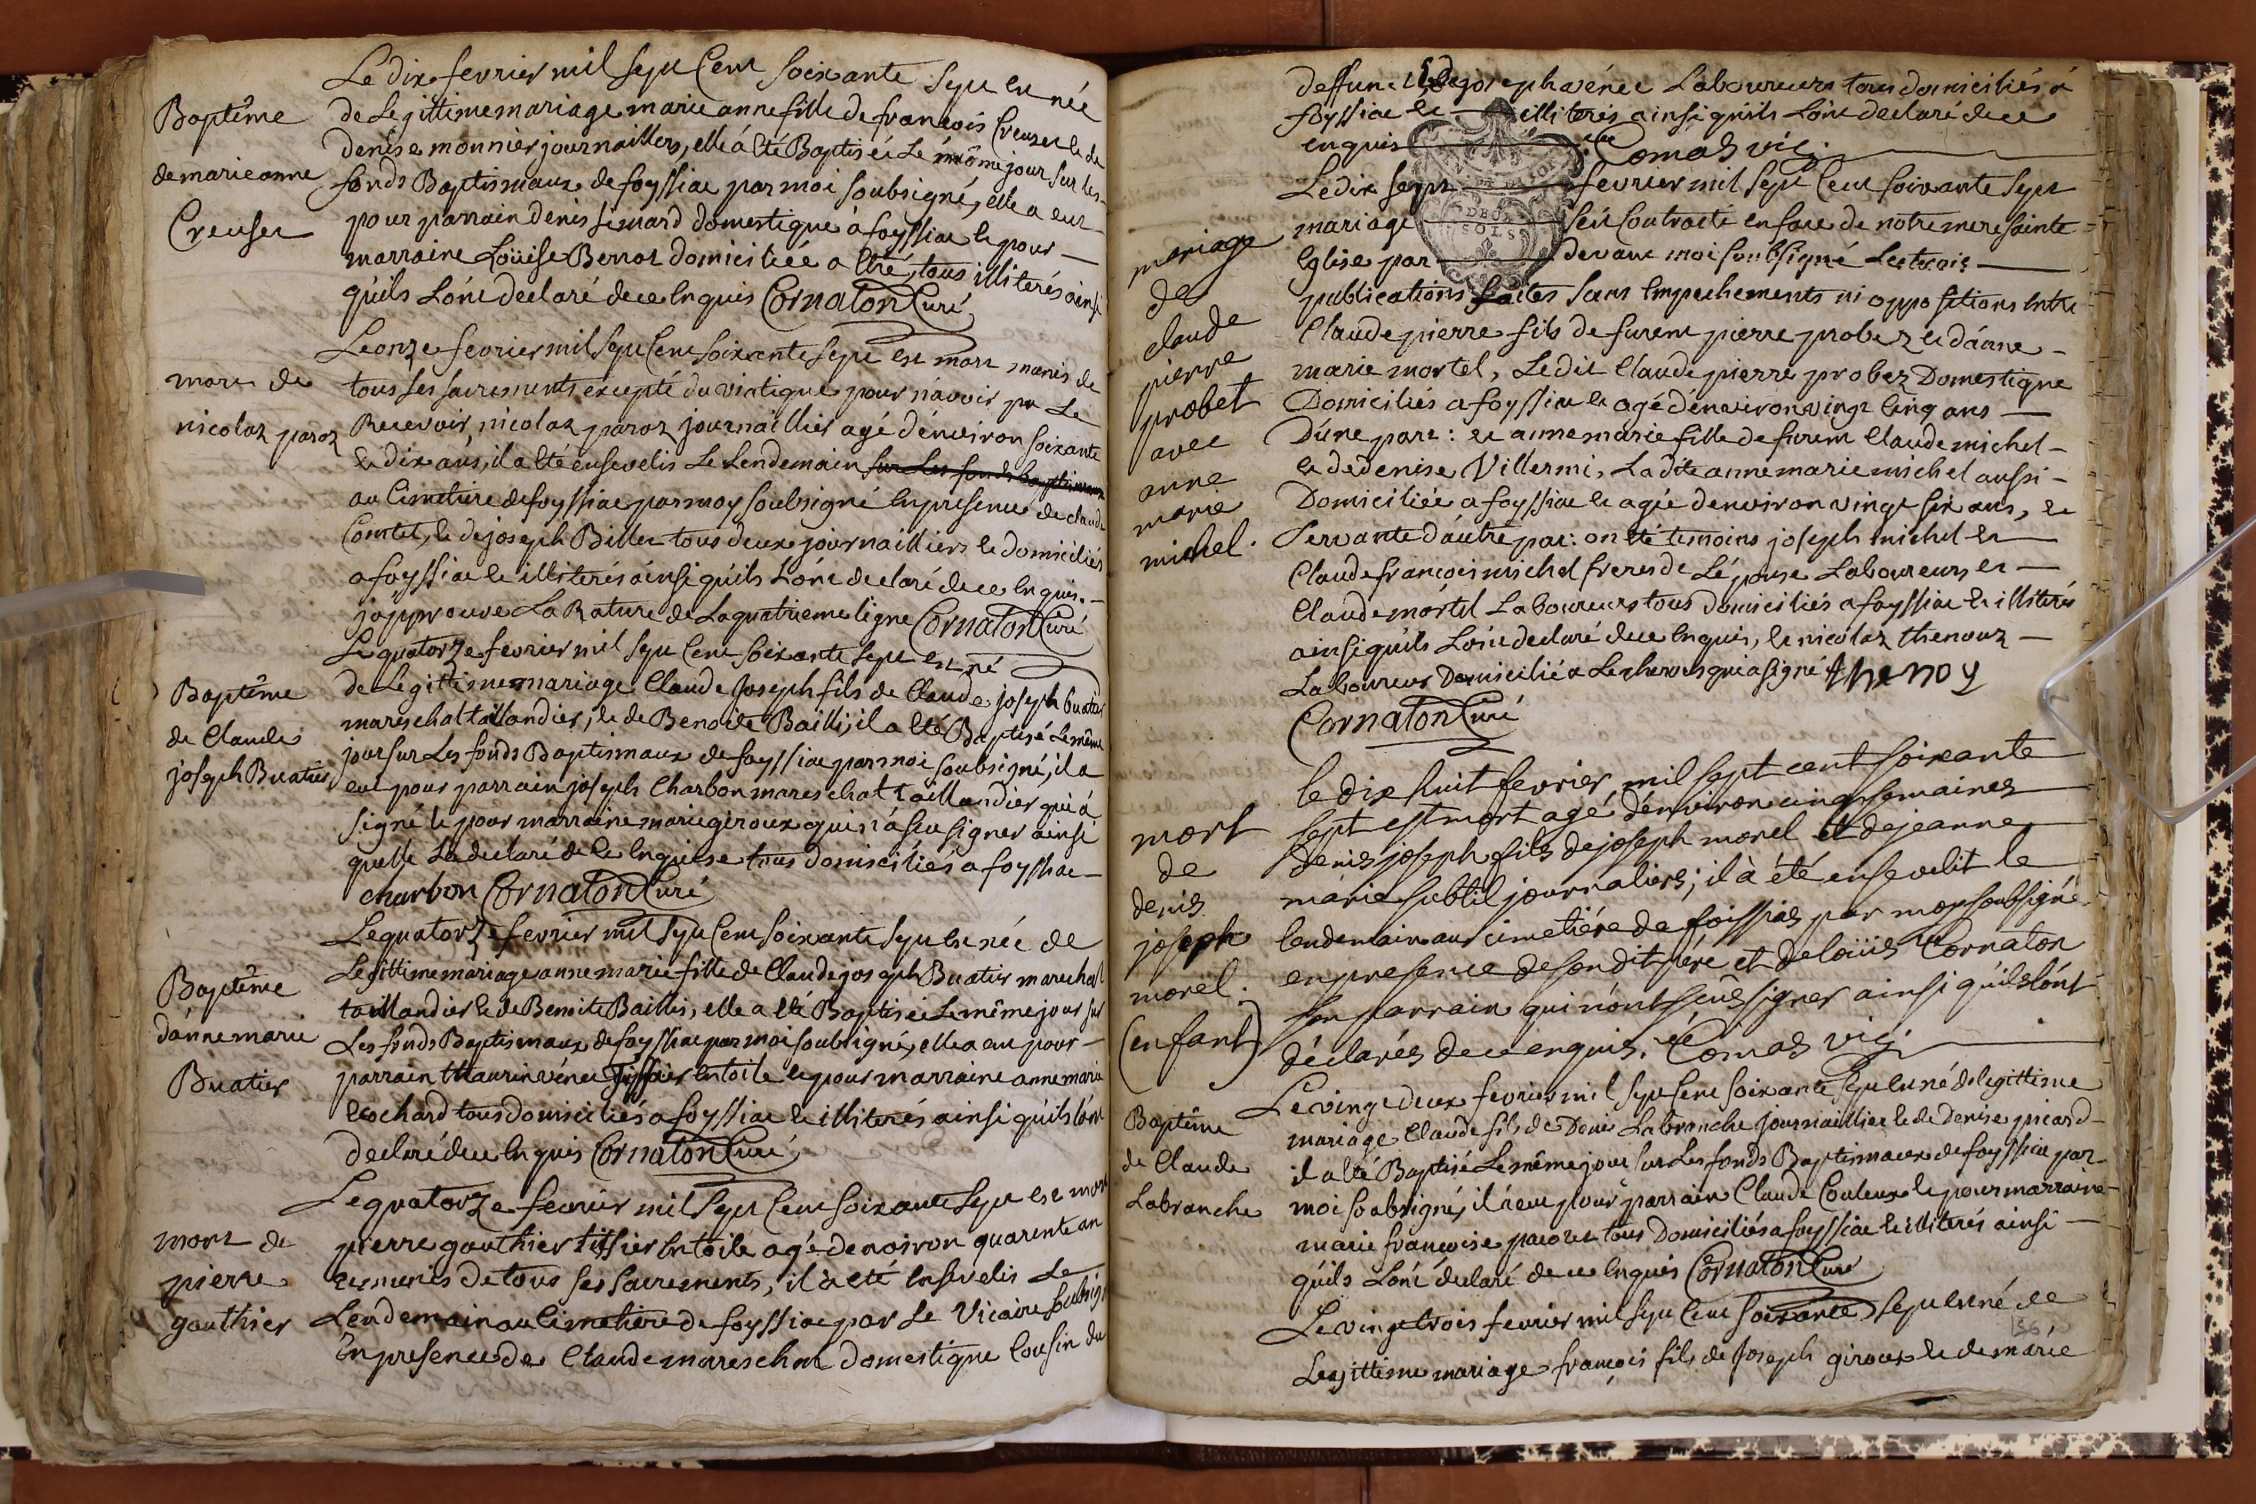 Le dix fevrier mil sept Cent soixante sept est née
Baptême
de marieanne
Creuset
de Legittime mariage marie anne fille de francois Creuset et de
denise monnier journailliers, elle á été Baptiséé Le même jour sur les
fonds Baptismaux de foyssiac par moi soubsigné, elle a eut
pour parrain denis simard domestique à foyssiac et pour
marraine Loüise Berrot domiciliéé a tré, tous illiterés ainsi
qu'ils L'ont declaré de ce Enquis Cornaton Curé
mort de
nicolas paroz
Le onze fevrier mil sept Cent soixante sept est mort munis de
tous ses sacrements excepté du viatique pour n'avoir pu Le
Recevoir, nicolas paroz journaillier agé d'énviron soixante
et dix ans, il a été ensevelis Le Lendemain sur Les fonds Baptismaux
au Cimetiere de foyssiac par moy soubsigné En presence de claude
Comtet, et de joseph Billet tous deux journailliers et domiciliés
a foyssiac et illiterés áinsi qu'ils L'ónt declaré de ce Enquis.
j'approuve La Rature de La quatrieme ligne Cornaton Curé
Baptême
de Claude
joseph Buatier
Le quatorze fevrier mil sept Cent soixante sept est né
de Legittime mariage Claude Joseph fils de Claude joseph buatier
mareschal taillandier, et de Benoite Bailli, il a été Baptisé Le même
jour sur Les fonds Baptismaux de foyssiac par moi soubsigné, il a
eut pour parrain joseph Charbon mareschal taillandier qui á
signé et pour marraine marie giroux qui n'á sçu signer ainsi
quelle La declaré de Ce Enquise tous domiciliés a foyssiac
charbon Cornaton Curé
Baptême
d'anne marie
Buatier
Le quatorze fevrier mil sept Cent soixante sept est néé de
Legittime mariage anne marie fille de Claude joseph Buatier marechal
taillandier et de Benoite Baillis, elle a été Baptiséé Le même jour sur
Les fonds Baptismaux de foyssiac par moi soubsigné, elle a eu pour
parrain thaurin vénet tissier En toile et pour marraine anne marie
Cochard tous domiciliés a foyssiac et illiterés ainsi qu'ils L'ont
declaré de ce Enquis Cornaton Curé
mort de
pierre
gauthier
Le quatorze fevrier mil sept Cent soixante sept est mort
pierre gauthier tissier En toile agé denviron quarente an
et munis de tous ses sacrements, il a été Ensevelis Le
Lendemain au Cimetiere de foyssiac par Le Vicaire soubsig
En presence de Claude mareschal domestique Cousin du
deffunt et de joseph vénet Laboureurs tous domiciliés á
foyssiac et illiterés ainsi qu'ils L'ónt declaré de ce
enquis Comas vic.
DEUX
SOLS
mariage
de
claude
pierre
probet
avec
anne
marie
michel.
Le dix sept fevrier mil sept Cent soixante sept
mariage s'est Contracté en face de notre mere sainte
Eglise par devant moi soubsigné Les trois
publications faites sans Empechements ni oppositions Entre
Claude pierre fils de furent pierre probet et d'anne
marie mortel, Ledit Claude pierre probet Domestique
Domiciliés a foyssiac et agé d'énviron vingt Cinq ans
D'une part: et anne marie fille de furent Claude michel
et de denise Villermi, La dite anne marie michel aussi
Domiciliée a foyssiac et agée denviron vingt six ans, et
servante d'autre par: on été temoins joseph michel et
Claude francois michel freres de L'épouse Laboureurs et
Claude mortel Laboureurs tous domiciliés a foyssiac et illiterés
ainsi qu'ils L'ónt declaré de ce Enquis, et nicolas thenouz
Laboureur Domicilié a qui a signé thenoy
Cornaton Curé
mort
de
denis
joseph
morel.
(enfant)
le dix huit fevrier, mil sept cent soixante
sept est mort agé, dénviron cinq semaines
denis joseph fils de joseph morel et de jeanne
márie subtil journaliers; il à été ensevelit le
lendemain au cimetiére de foissias par moy soubsigné
en presence de son dit pére et de loüis Cornaton
son parrain qui n'ont sçus signer ainsi qu'ils lónt
déclarés de ce enquis. Comas vic.
Baptême
de Claude
Labranche
Le vingt deux fevrier mil sept Cent soixante sept est né de legittime
mariage Claude fils de Denis Labranche Journaillier et de Denise picard
il a été Baptisé Le même jour sur Les fonds Baptismaux de foyssiac par
moi soubsigné, il á eu pour parrain Claude Couleux et pour marraine
marie francoise paroz tous Domiciliés a foyssiac et illiterés ainsi
qu'ils L'ont declaré de ce Enquis Cornaton Curé
Le vingt trois fevrier mil sept Cent soixante sept est né de
Legittime mariage francois fils de Joseph giroux et de márie